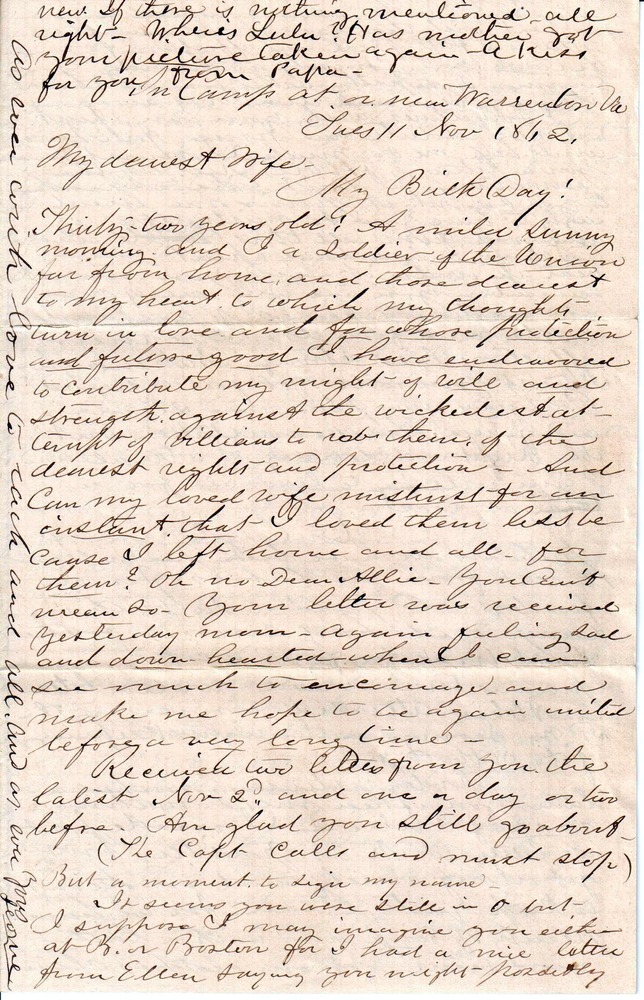 new. If there is nothing mentioned all
right - Where's Lulu? Has mother got
your picture taken again - A kiss
for you from Papa -
In Camp at or near Warrenton Va
Tues 11 Nov 1862.
My dearest Wife -
My Birth Day!
Thirty-two years old! A mild sunny
morning and I a soldier of the Union
far from home, and those dearest
to my heart to which my thoughts
turn in love and for whose protection
and future good I have endeavored
to contribute my might of will and
strength against the wickedest at-
tempt of villians to rob them of the
dearest rights and protection - And
Can my loved wife mistrust for an
instant that I loved them less be
cause I left home and all - for
them? Oh no Dear Allie - You Can't
mean so - Your letter was received
yesterday morn - again feeling sad
and down-hearted when I can
see much to encourage and
make me hope to be again united
before a very long time -
Received two letters from you the
latest Nov 2d. and one a day or two
before. Am glad you still go about -
(The Capt calls and must stop)
But a moment to sign my name -
It seems you were still in O but
I suppose I may imagine you either
at B. or Boston for I had a nice letter
from Ellen saying you might possibly
As ever with love to each and all. And as ever yrs